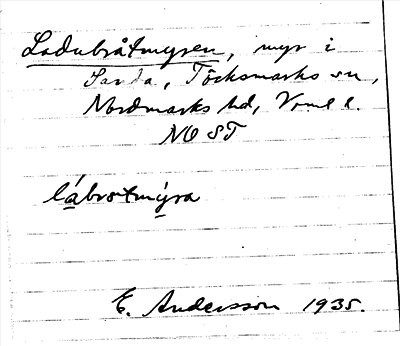 Ladubråtmyren, myr i
Sanda, Töcksmarks sn,
Nordmarks hd, Vrml l.
NO ST
lábrotmýra
E. Andersson 1935.